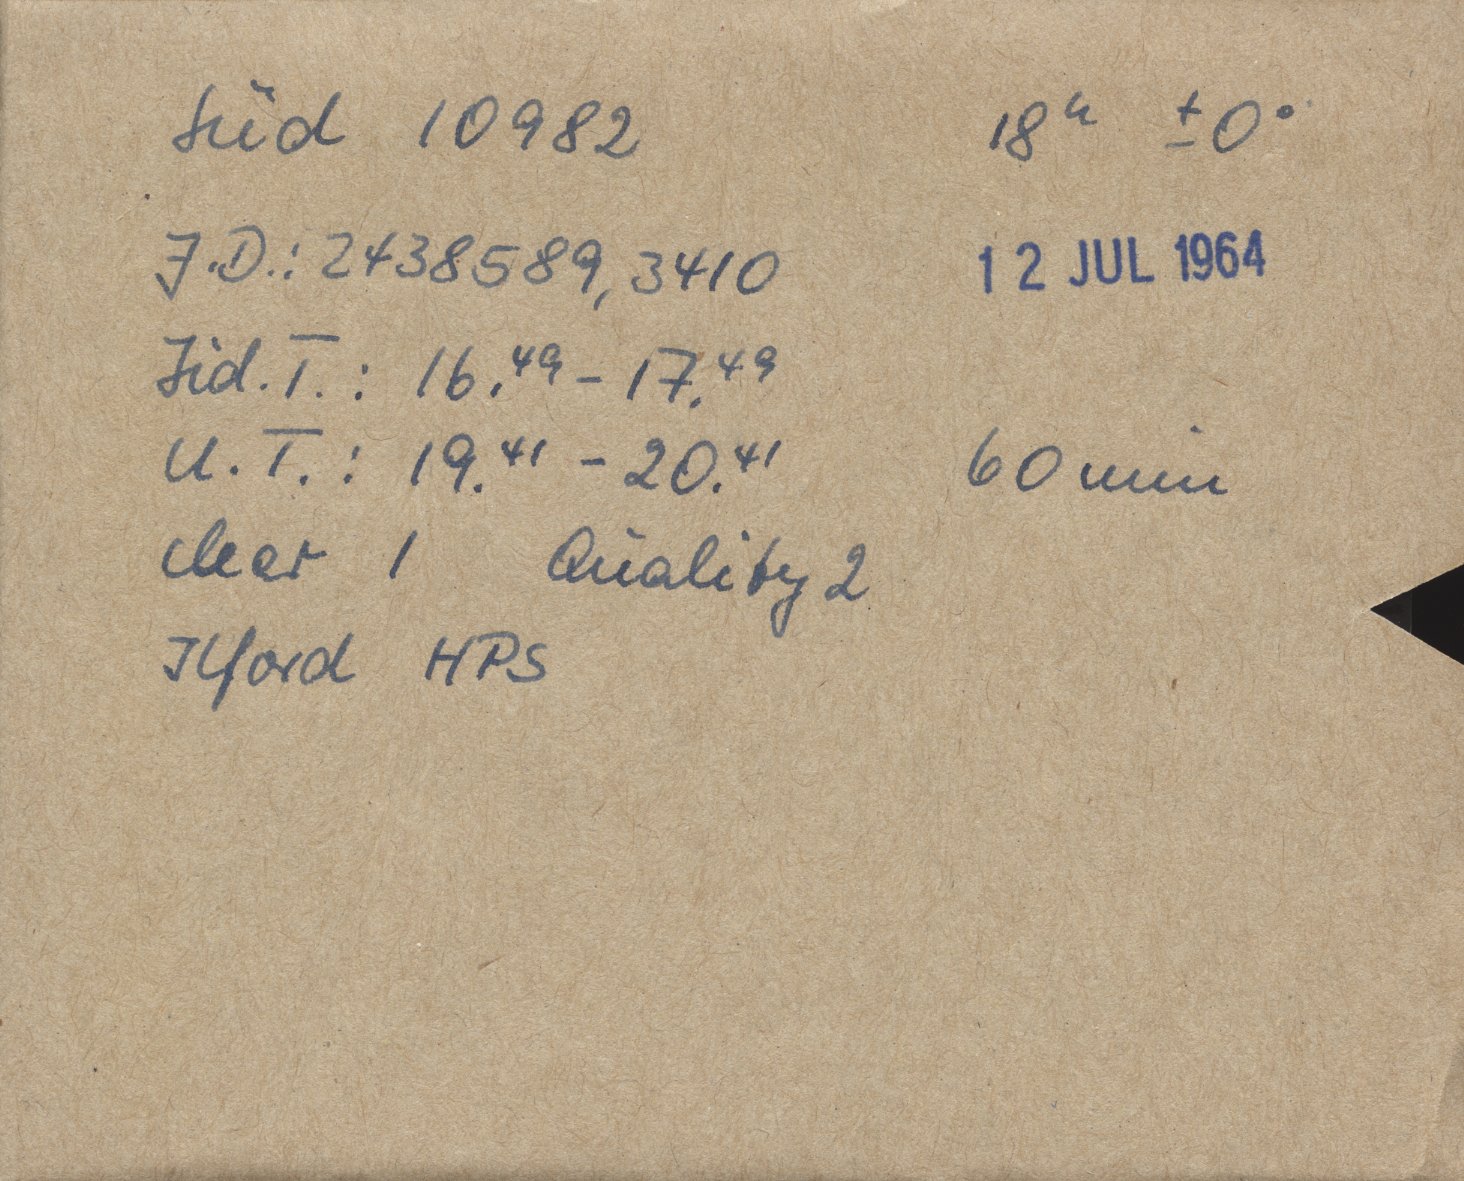 Süd 10982 18ʰ ±0°
J.D.: 2438589,3410 12 JUL 1964
Sid. T.: 16.⁴⁹ – 17.⁴⁹
U.T.: 19.⁴¹ – 20.⁴¹ 60 min
clear 1 Quality 2
Ilford HPS